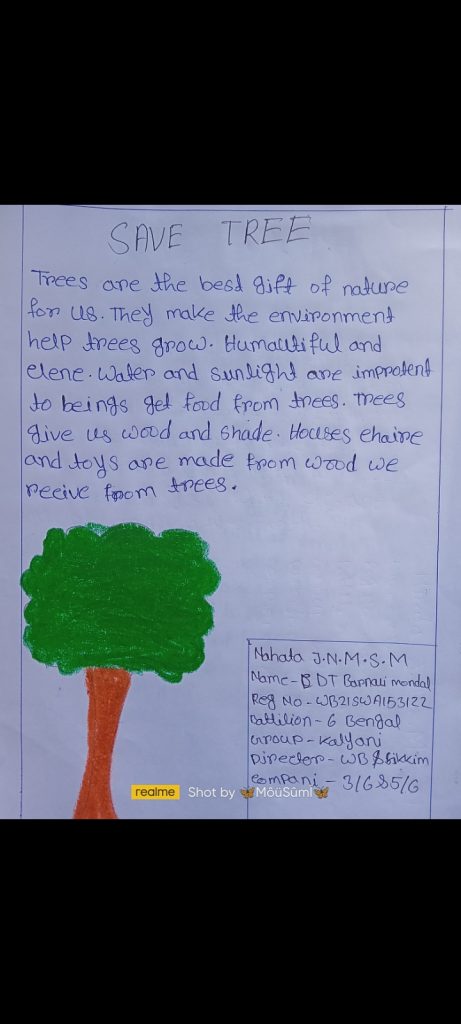 SAVE TREE
Trees are the best gift of nature
for us. They make the environment
help trees grow. Humautiful and
elene. Water and sunlight are improtent
to beings get food from trees. Trees
give us wood and shade. Houses chaire
and toys are made from wood we
recive from trees.
Nahata J.N.M.S.M
Name - CDT Barnali mondal
Reg No - WB21SWA153122
Battilion - 6 Bengal
Group - Kalyani
Director - WB & Sikkim
Compani - 3/6 & 5/6
realme Shot by 🦋MôüSûmI🦋